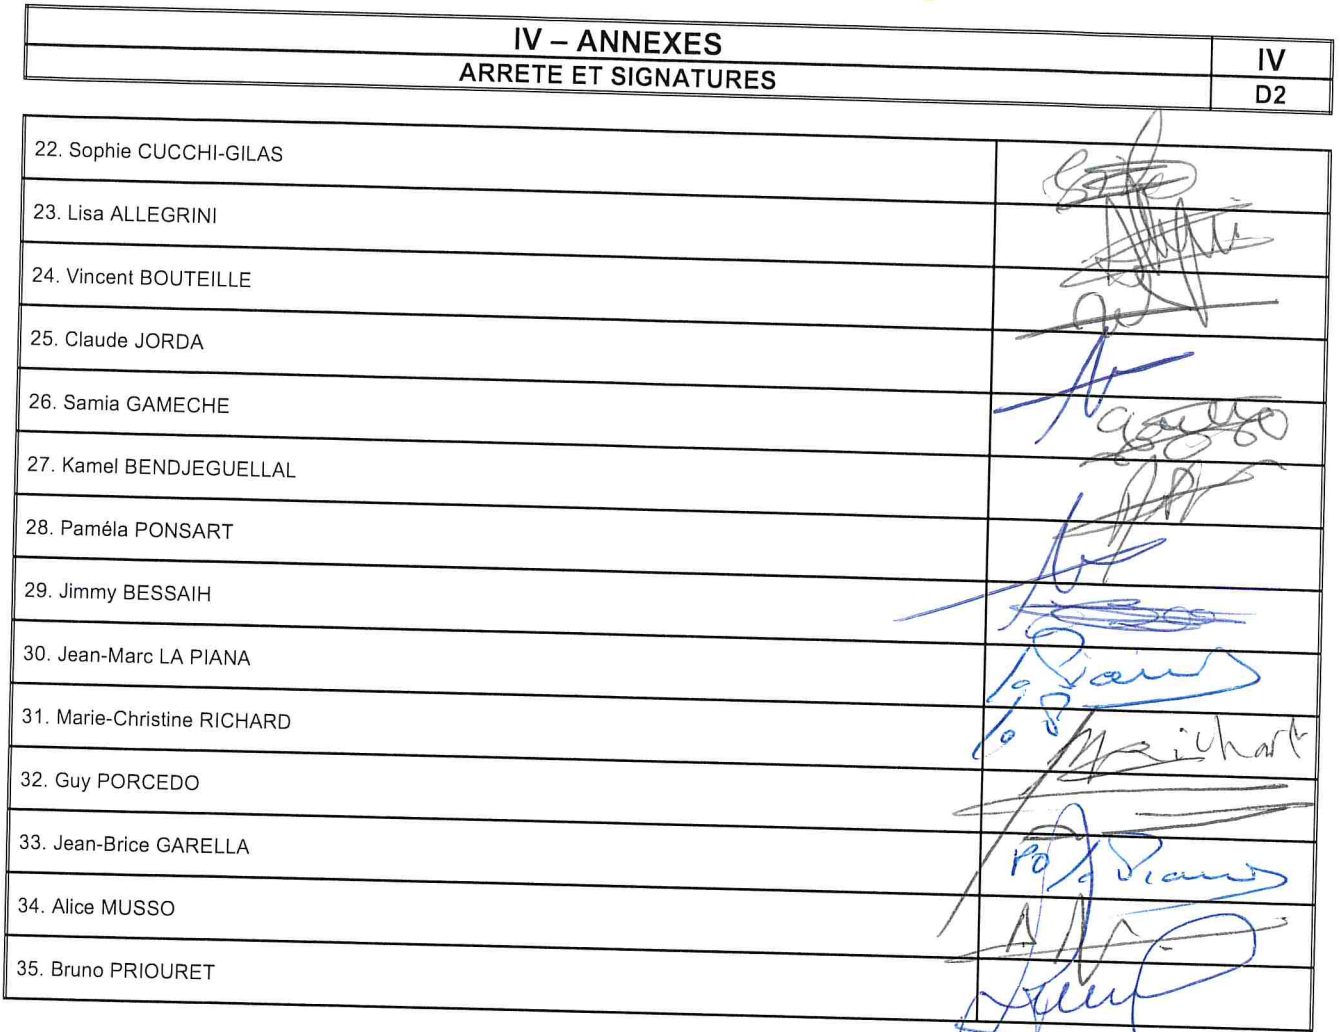 IV – ANNEXES
IV
ARRETE ET SIGNATURES
D2
22. Sophie CUCCHI-GILAS
23. Lisa ALLEGRINI
24. Vincent BOUTEILLE
25. Claude JORDA
26. Samia GAMECHE
27. Kamel BENDJEGUELLAL
28. Paméla PONSART
29. Jimmy BESSAIH
30. Jean-Marc LA PIANA
31. Marie-Christine RICHARD
32. Guy PORCEDO
33. Jean-Brice GARELLA
PO
34. Alice MUSSO
35. Bruno PRIOURET